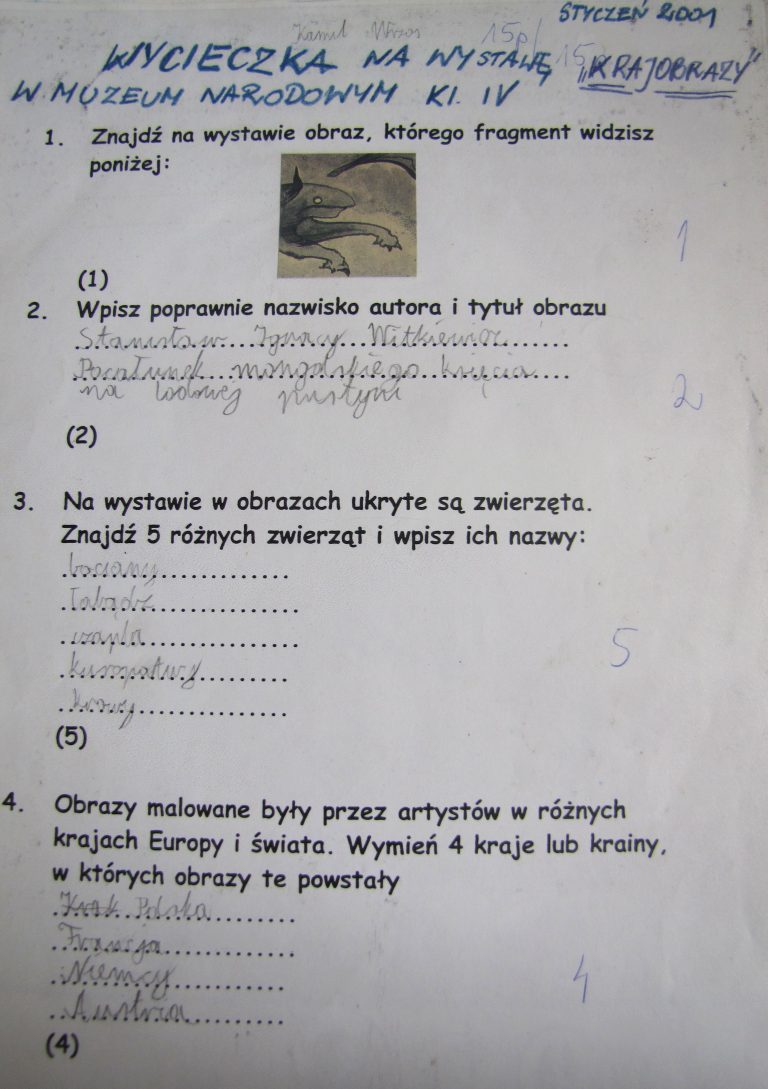 STYCZEŃ 2001
Kamil Wrzos 15p/15
WYCIECZKA NA WYSTAWĘ „KRAJOBRAZY”
W MUZEUM NARODOWYM Kl. IV
1. Znajdź na wystawie obraz, którego fragment widzisz
poniżej:
1
(1)
2. Wpisz poprawnie nazwisko autora i tytuł obrazu
Stanisław Ignacy Witkiewicz
Pocałunek mongolskiego księcia
na lodowej pustyni
2
(2)
3. Na wystawie w obrazach ukryte są zwierzęta.
Znajdź 5 różnych zwierząt i wpisz ich nazwy:
bociany
łabądź
czapla
5
kuropatwy
krowy
(5)
4. Obrazy malowane były przez artystów w różnych
krajach Europy i świata. Wymień 4 kraje lub krainy,
w których obrazy te powstały
Polska
Francja
Niemcy
4
Austria
(4)